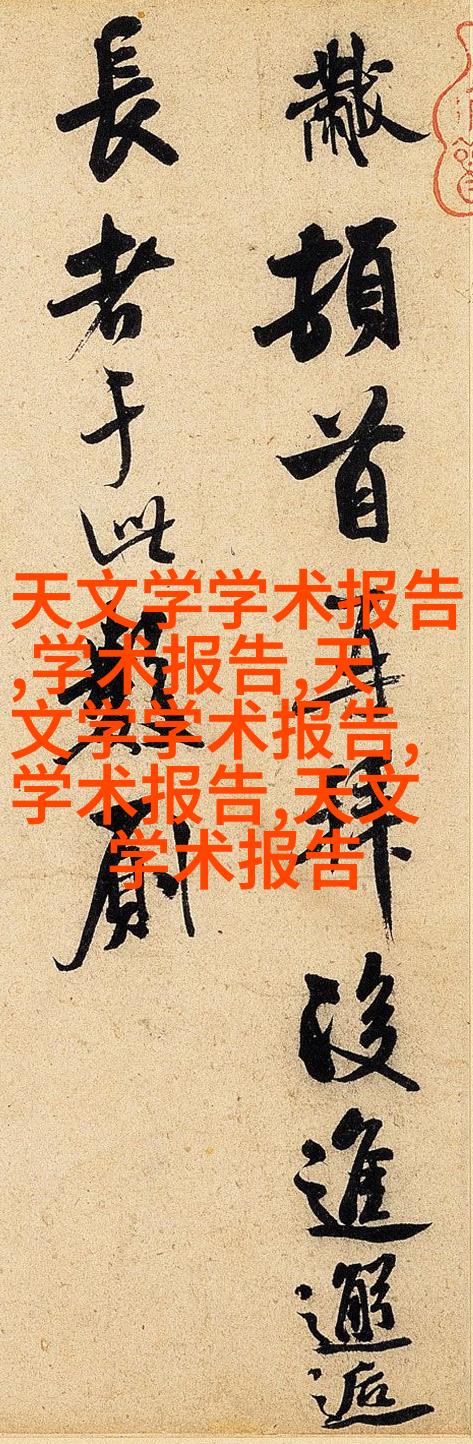 黻頓首再拜後進邂逅
長者于此
天文学学术报告
,学术报告,天
文学学术报告,
学术报告,天文
学术报告